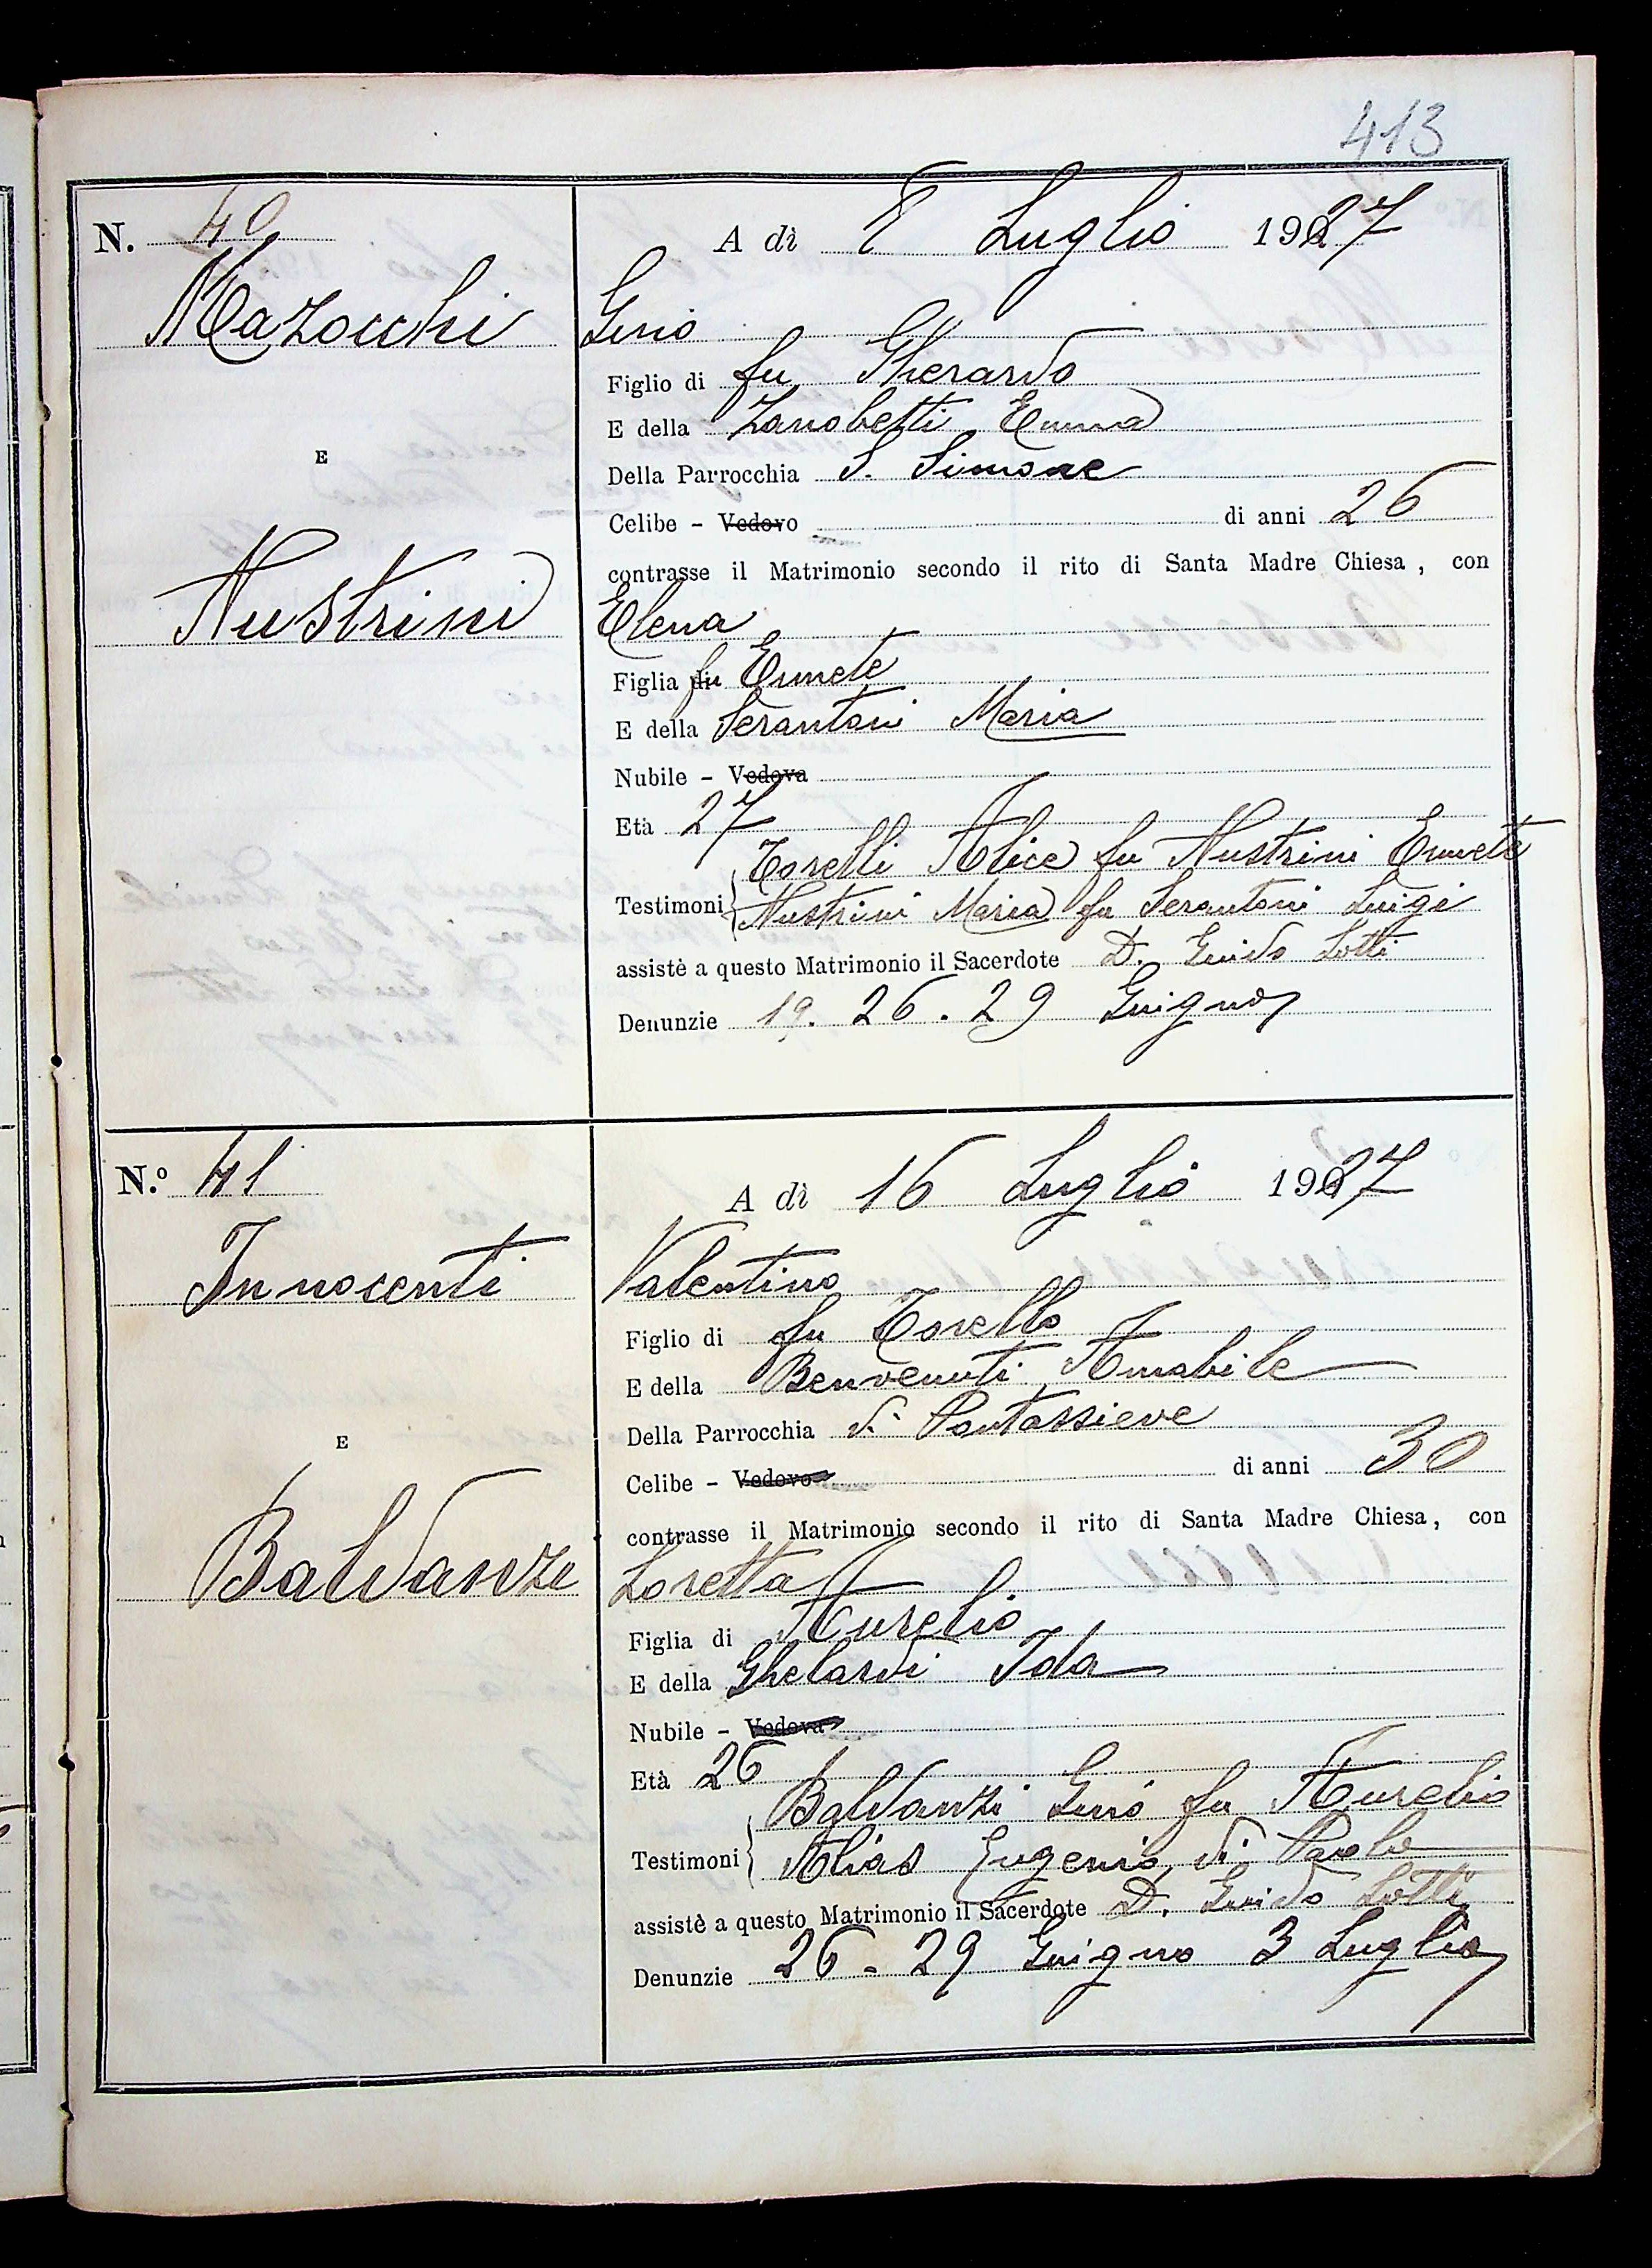 413
N. 40
A dì 8 Luglio 1927
Mazocchi
Gino
Figlio di fu Gherardo
E della Zanobetti Emma
E
Della Parrocchia S. Simone
Celibe – Vedovo di anni 26
contrasse il Matrimonio secondo il rito di Santa Madre Chiesa, con
Nustrini
Elena
Figlia fu Ermete
E della Serantoni Maria
Nubile – Vedova
Età 27
Torelli Alice fu Nustrini Ermete
Testimoni Nustrini Maria fu Serantoni Luigi
assistè a questo Matrimonio il Sacerdote D. Guido Lotti
Denunzie 19. 26. 29 Giugno
N.º 41
A dì 16 Luglio 1927
Innocenti
Valentino
Figlio di fu Torello
E della Benvenuti Amabile
Della Parrocchia di Pontassieve
E
Celibe – Vedovo di anni 30
contrasse il Matrimonio secondo il rito di Santa Madre Chiesa, con
Baldanzi
Loretta
Figlia di Aurelio
E della Ghelardi Ida
Nubile – Vedova
Età 26
Baldanzi Gino fu Aurelio
Testimoni Alias Eugenio di Paolo
assistè a questo Matrimonio il Sacerdote D. Guido Lotti
Denunzie 26 - 29 Giugno 3 Luglio